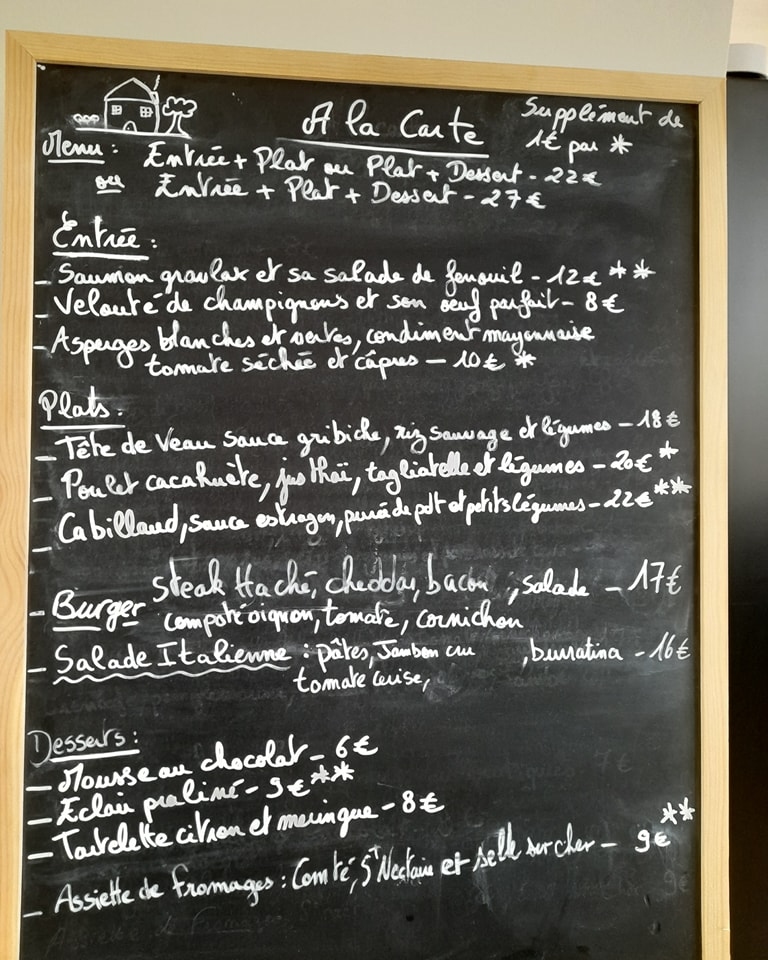 A la Carte
Supplément de
1€ par *
Menu : Entrée + Plat ou Plat + Dessert - 22€
ou Entrée + Plat + Dessert - 27€
Entrée :
- Saumon gravlax et sa salade de fenouil - 12€ **
- Velouté de champignons et son oeuf parfait - 8€
- Asperges blanches et vertes, condiment mayonnaise
tomate séchée et câpres - 10€ *
Plats :
- Tête de Veau sauce gribiche, riz sauvage et légumes - 18€
- Poulet cacahuète, jus thaï, tagliatelle et légumes - 20€ *
- Cabillaud, sauce estragon, purée de pdt et petits légumes - 22€ **
- Burger steak Haché, cheddar, bacon, salade - 17€
compoté oignon, tomate, cornichon
- Salade Italienne : pâtes, Jambon cru, burratina - 16€
tomate cerise,
Desserts :
- Mousse au chocolat - 6€
- Eclair praliné - 9€ **
- Tartelette citron et meringue - 8€
- Assiette de fromages : Comté, St Nectaire et selle sur cher - 9€ **